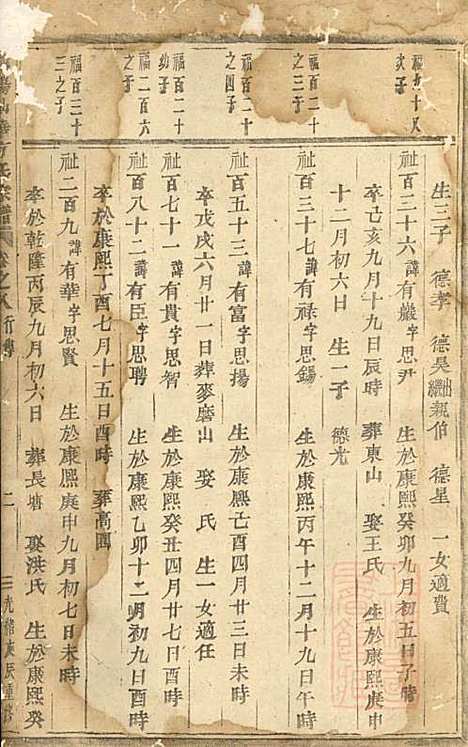 生三子 德孝 德昊出繼親伯 德星 一女適費
福九十八
次子
祉百三十六諱有嚴字思尹 生於康熙癸卯九月初五日子時
卒己亥九月十九日辰時 葬東山 娶王氏 生於康熙庚申
十二月初六日 生一子 德光
福百二十
之三子
祉百三十七諱有祿字思錫 生於康熙丙午十二月十九日午時
福百二十
之四子
祉百五十三諱有富字思揚 生於康熙己酉四月廿三日未時
卒戊戌六月廿一日葬麥磨山 娶 氏 生一女適任
福百二十
幼子
祉百七十一諱有貴字思智 生於康熙癸丑四月廿七日酉時
福二百六
之子
祉百八十二諱有臣字思聘 生於康熙乙卯十二月初九日酉時
卒於康熙丁酉七月十五日酉時 葬高園
福百三十
三之子
祉二百九諱有華字思賢 生於康熙庚申九月初七日未時
卒於乾隆丙辰九月初六日 葬長塘 娶洪氏 生於康熙癸
氏宗譜 卷之八 行傳 二 光緒庚辰重修